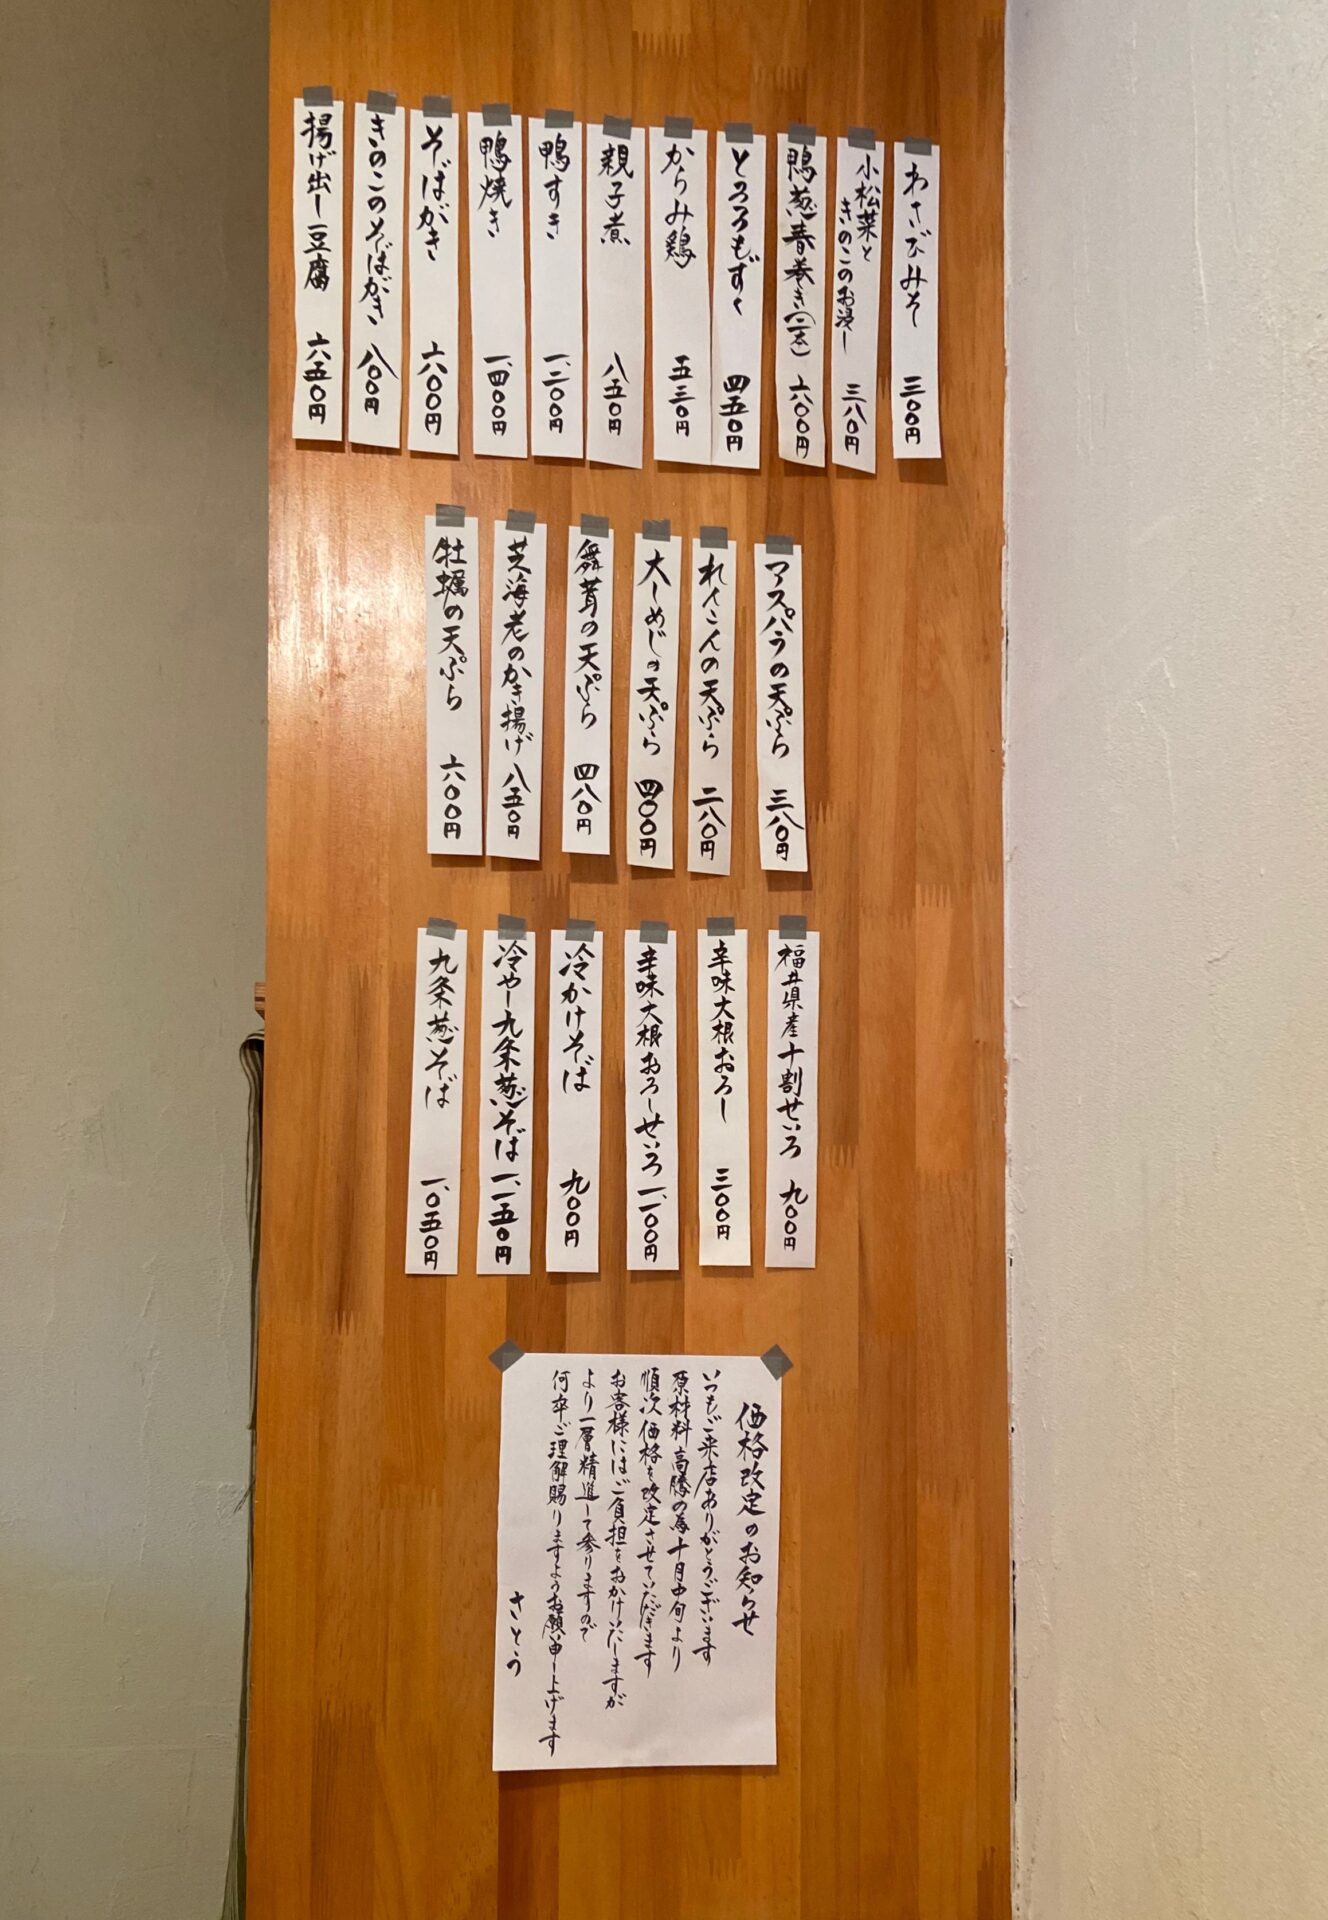 わさびみそ 三〇〇円
小松菜と
きのこのお浸し 三八〇円
鴨葱春巻き(二本) 六〇〇円
とろろもずく 四五〇円
からみ鶏 五三〇円
親子煮 八五〇円
鴨すき 一、二〇〇円
鴨焼き 一、四〇〇円
そばがき 六〇〇円
きのこのそばがき 八〇〇円
揚げ出し豆腐 六五〇円
アスパラの天ぷら 三八〇円
れんこんの天ぷら 二八〇円
大しめじの天ぷら 四〇〇円
舞茸の天ぷら 四八〇円
芝海老のかき揚げ 八五〇円
牡蠣の天ぷら 六〇〇円
福井県産十割せいろ 九〇〇円
辛味大根おろし 三〇〇円
辛味大根おろしせいろ 一、一〇〇円
冷かけそば 九〇〇円
冷やし九条葱そば 一、一五〇円
九条葱そば 一、〇五〇円
価格改定のお知らせ
いつもご来店ありがとうございます
原材料高騰の為十月中旬より
順次価格を改定させていただきます
お客様にはご負担をおかけいたしますが
より一層精進して参りますので
何卒ご理解賜りますようお願い申し上げます
さとう